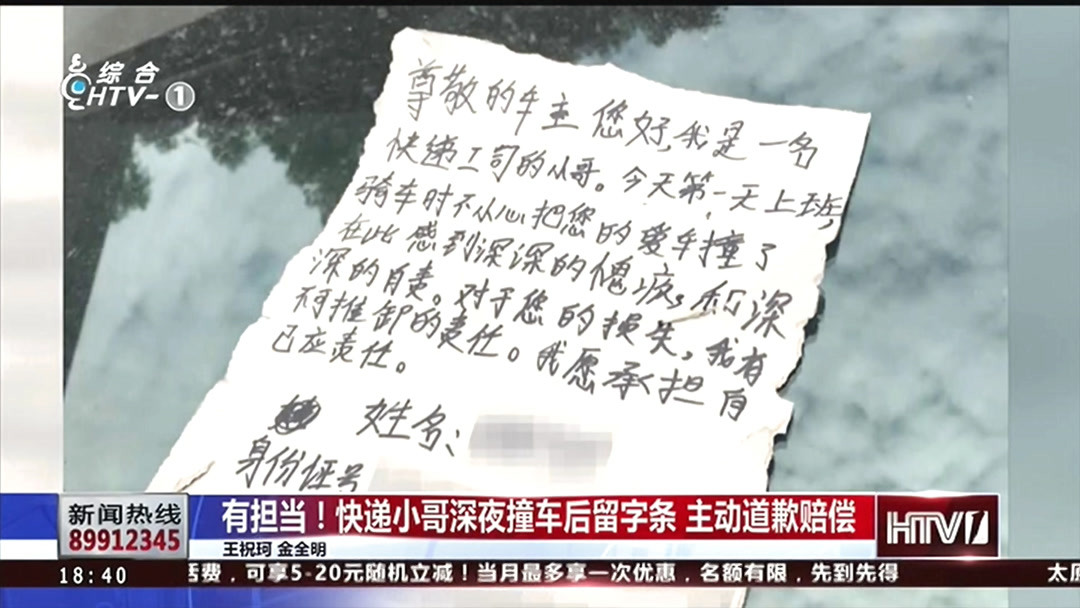 综合
HTV-1
尊敬的车主您好,我是一名
快递工司的小哥。今天第一天上班,
骑车时不从心把您的爱车撞了
在此感到深深的愧疚,和深
深的自责。对于您的损失,我有
不可推卸的责任。我愿承担自
己应责任。
姓名:
身份证号
新闻热线
89912345
有担当!快递小哥深夜撞车后留字条 主动道歉赔偿
HTV1
王祝珂 金全明
18:40
话费,可享5-20元随机立减!当月最多享一次优惠,名额有限,先到先得
太原